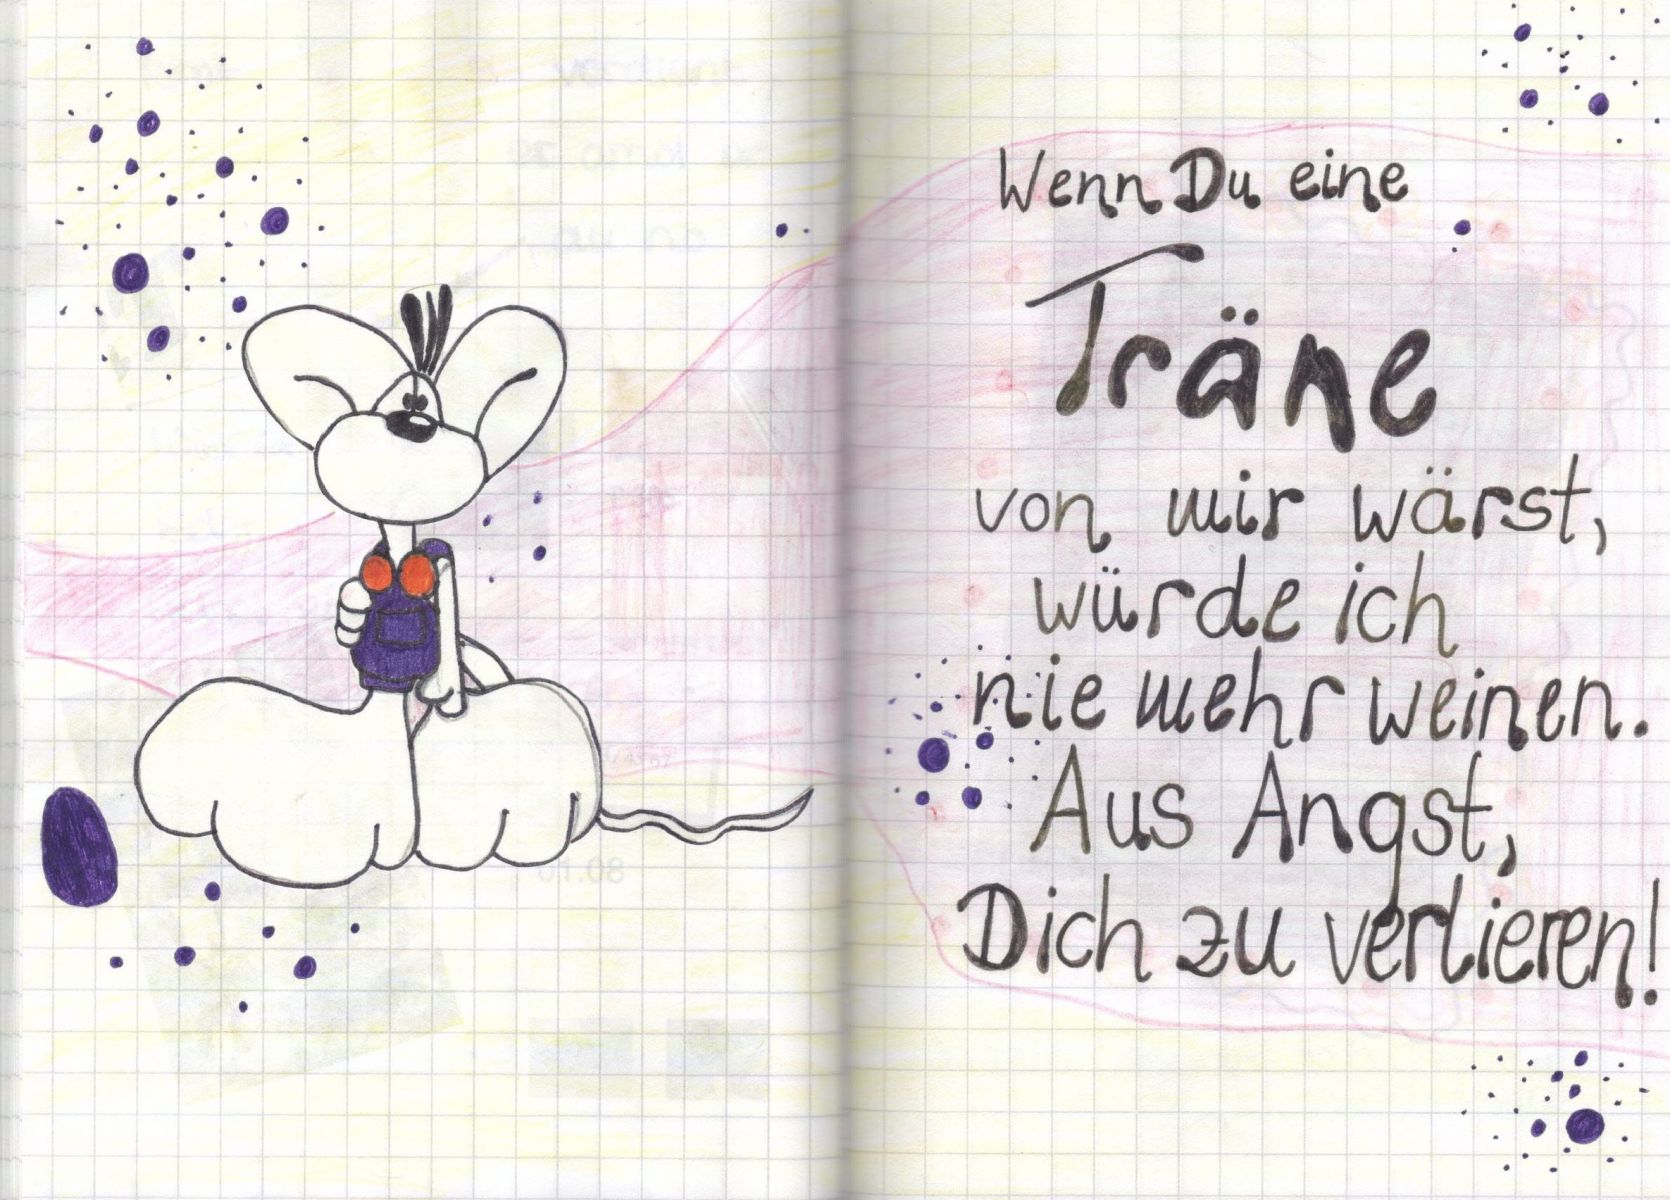 Wenn Du eine
Träne
von mir wärst,
würde ich
nie mehr weinen.
Aus Angst,
Dich zu verlieren!